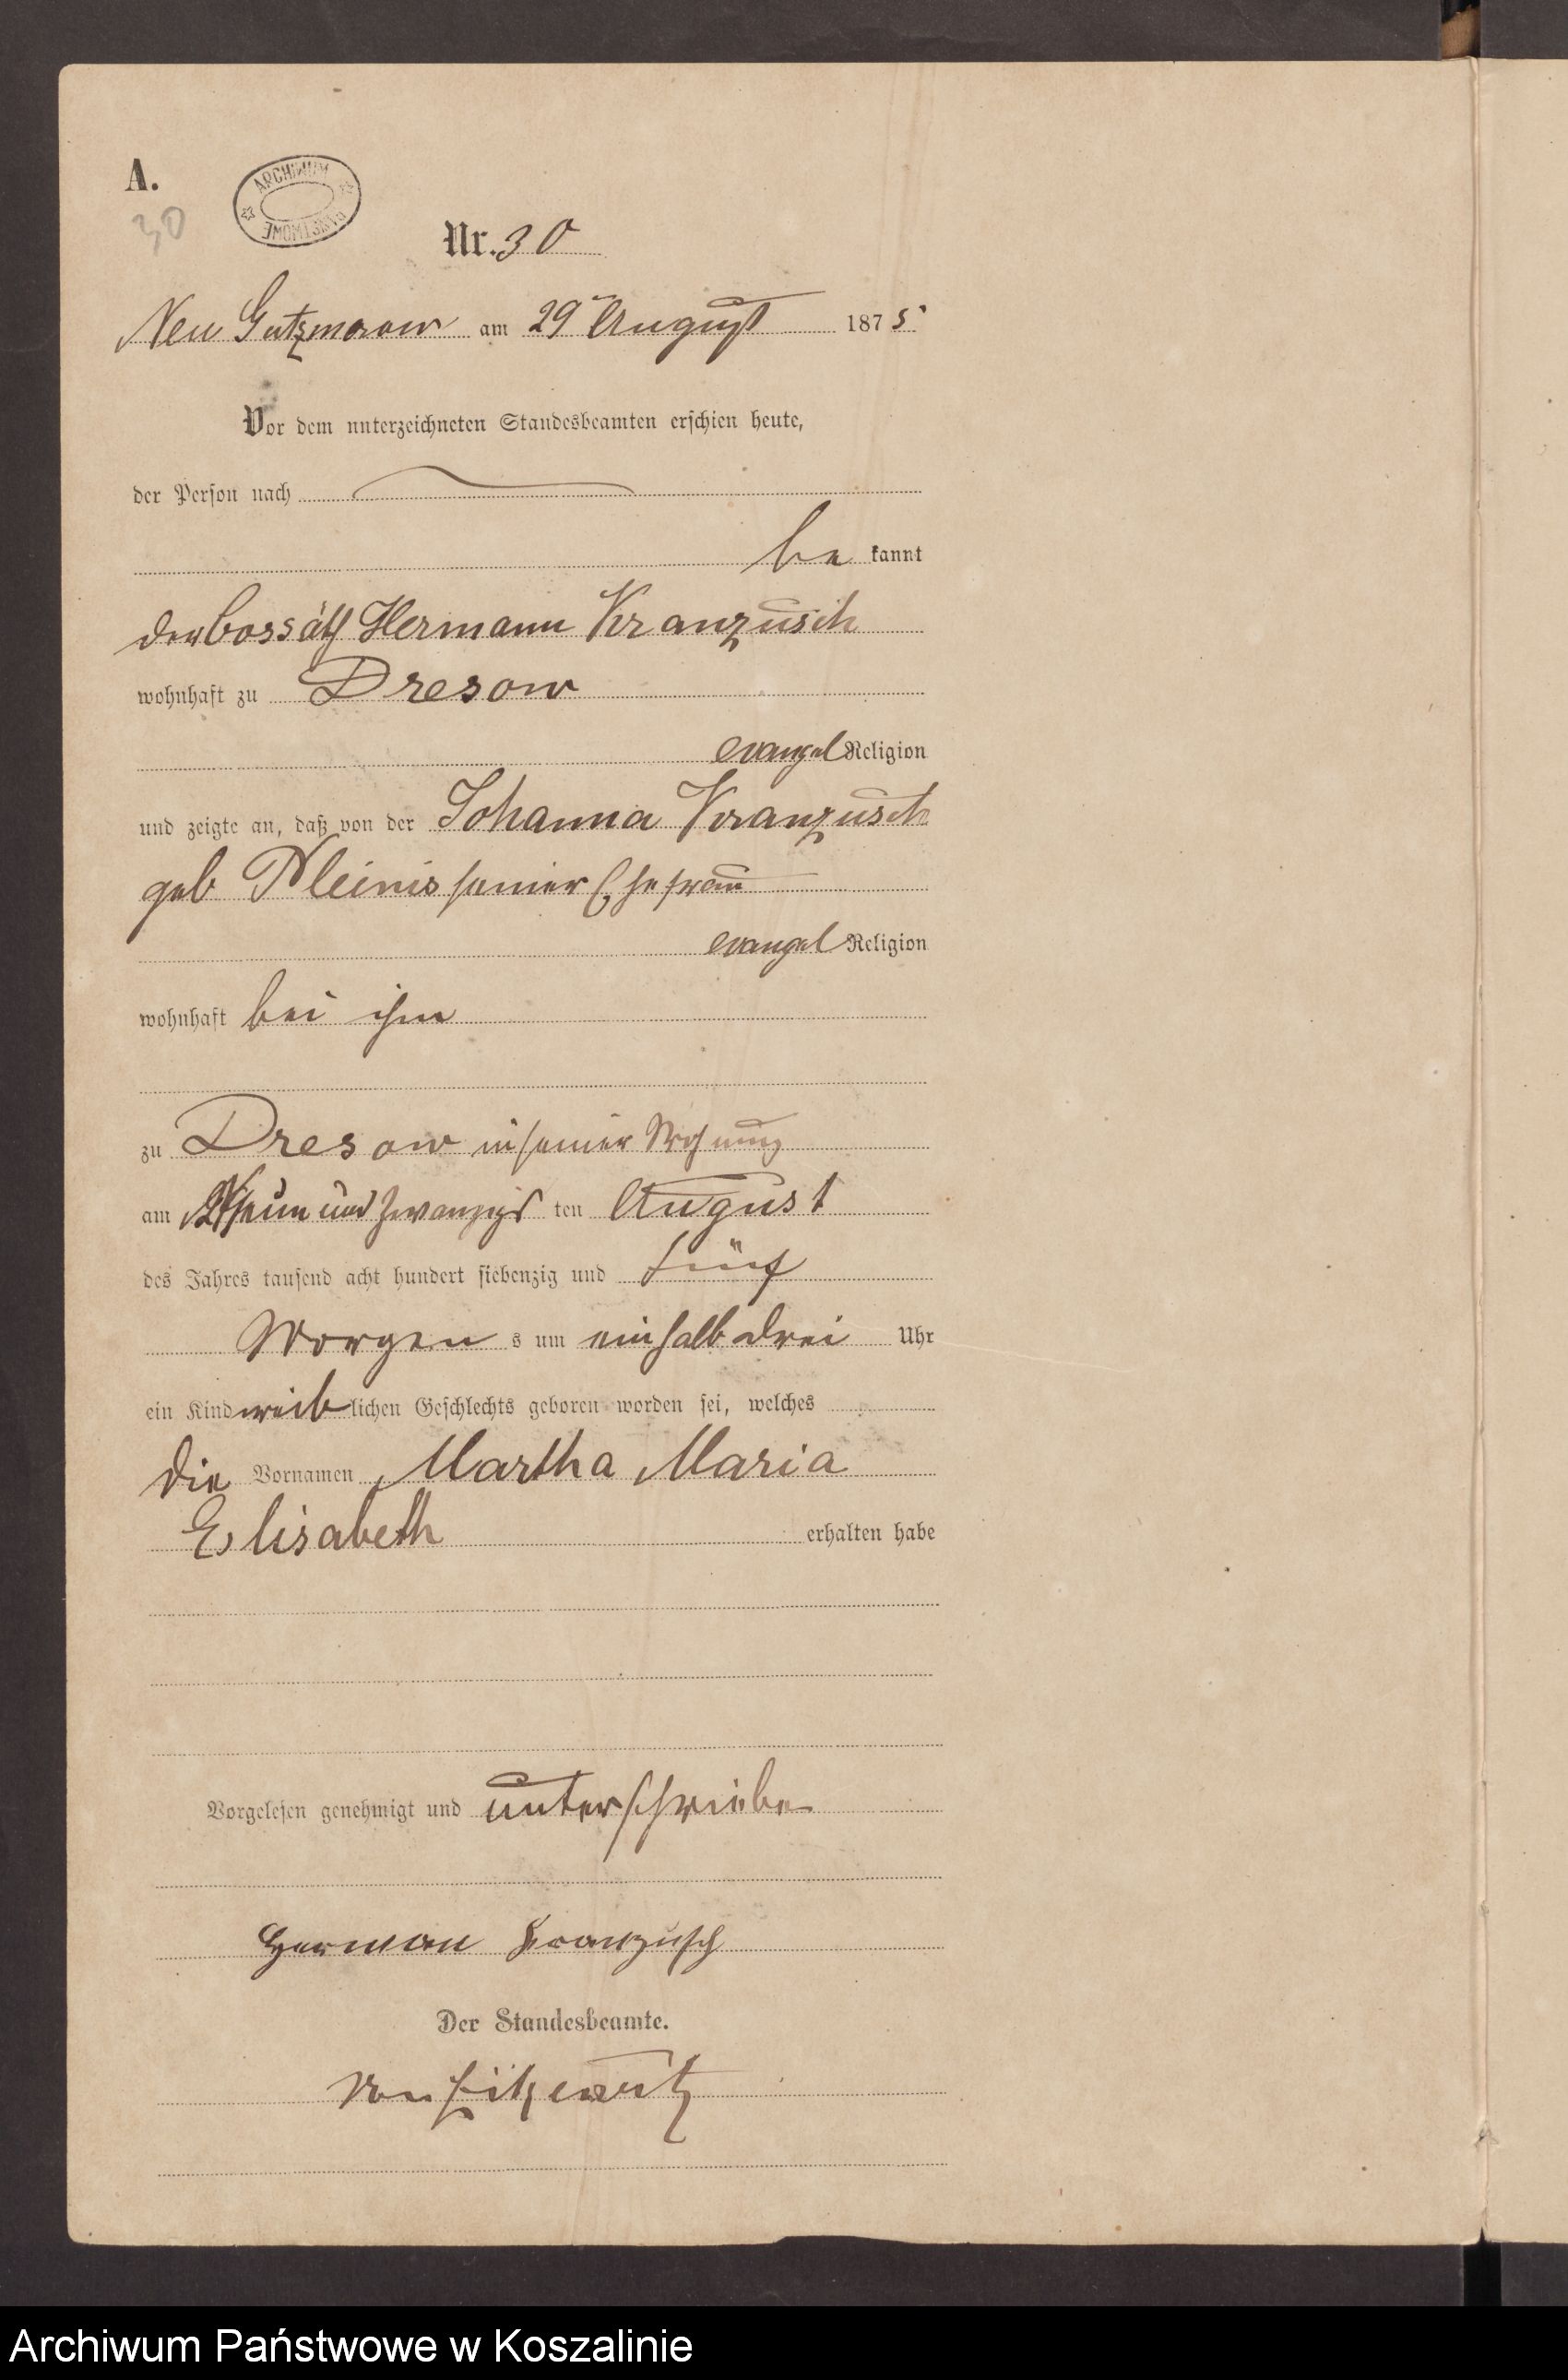 A.
30
ARCHIWUM PAŃSTWOWE
Nr. 30
Neu Gutzmerow am 29 August 1875
Vor dem unterzeichneten Standesbeamten erschien heute,
der Person nach
be kannt
der Cossäth Hermann Kranzusch
wohnhaft zu Dresow
evangel Religion
und zeigte an, daß von der Johanna Kranzusch
geb seiner Ehefrau
evangel Religion
wohnhaft bei ihm
zu Dresow in seiner Wohnung
am und zwanzigs ten August
des Jahres tausend acht hundert siebenzig und fünf
Morgen s um einhalb drei Uhr
ein Kind weib lichen Geschlechts geboren worden sei, welches
die Vornamen Martha Maria
Elisabeth erhalten habe
Vorgelesen genehmigt und unterschrieben
Herman Kranzusch
Der Standesbeamte.
von Zitzewitz
Archiwum Państwowe w Koszalinie